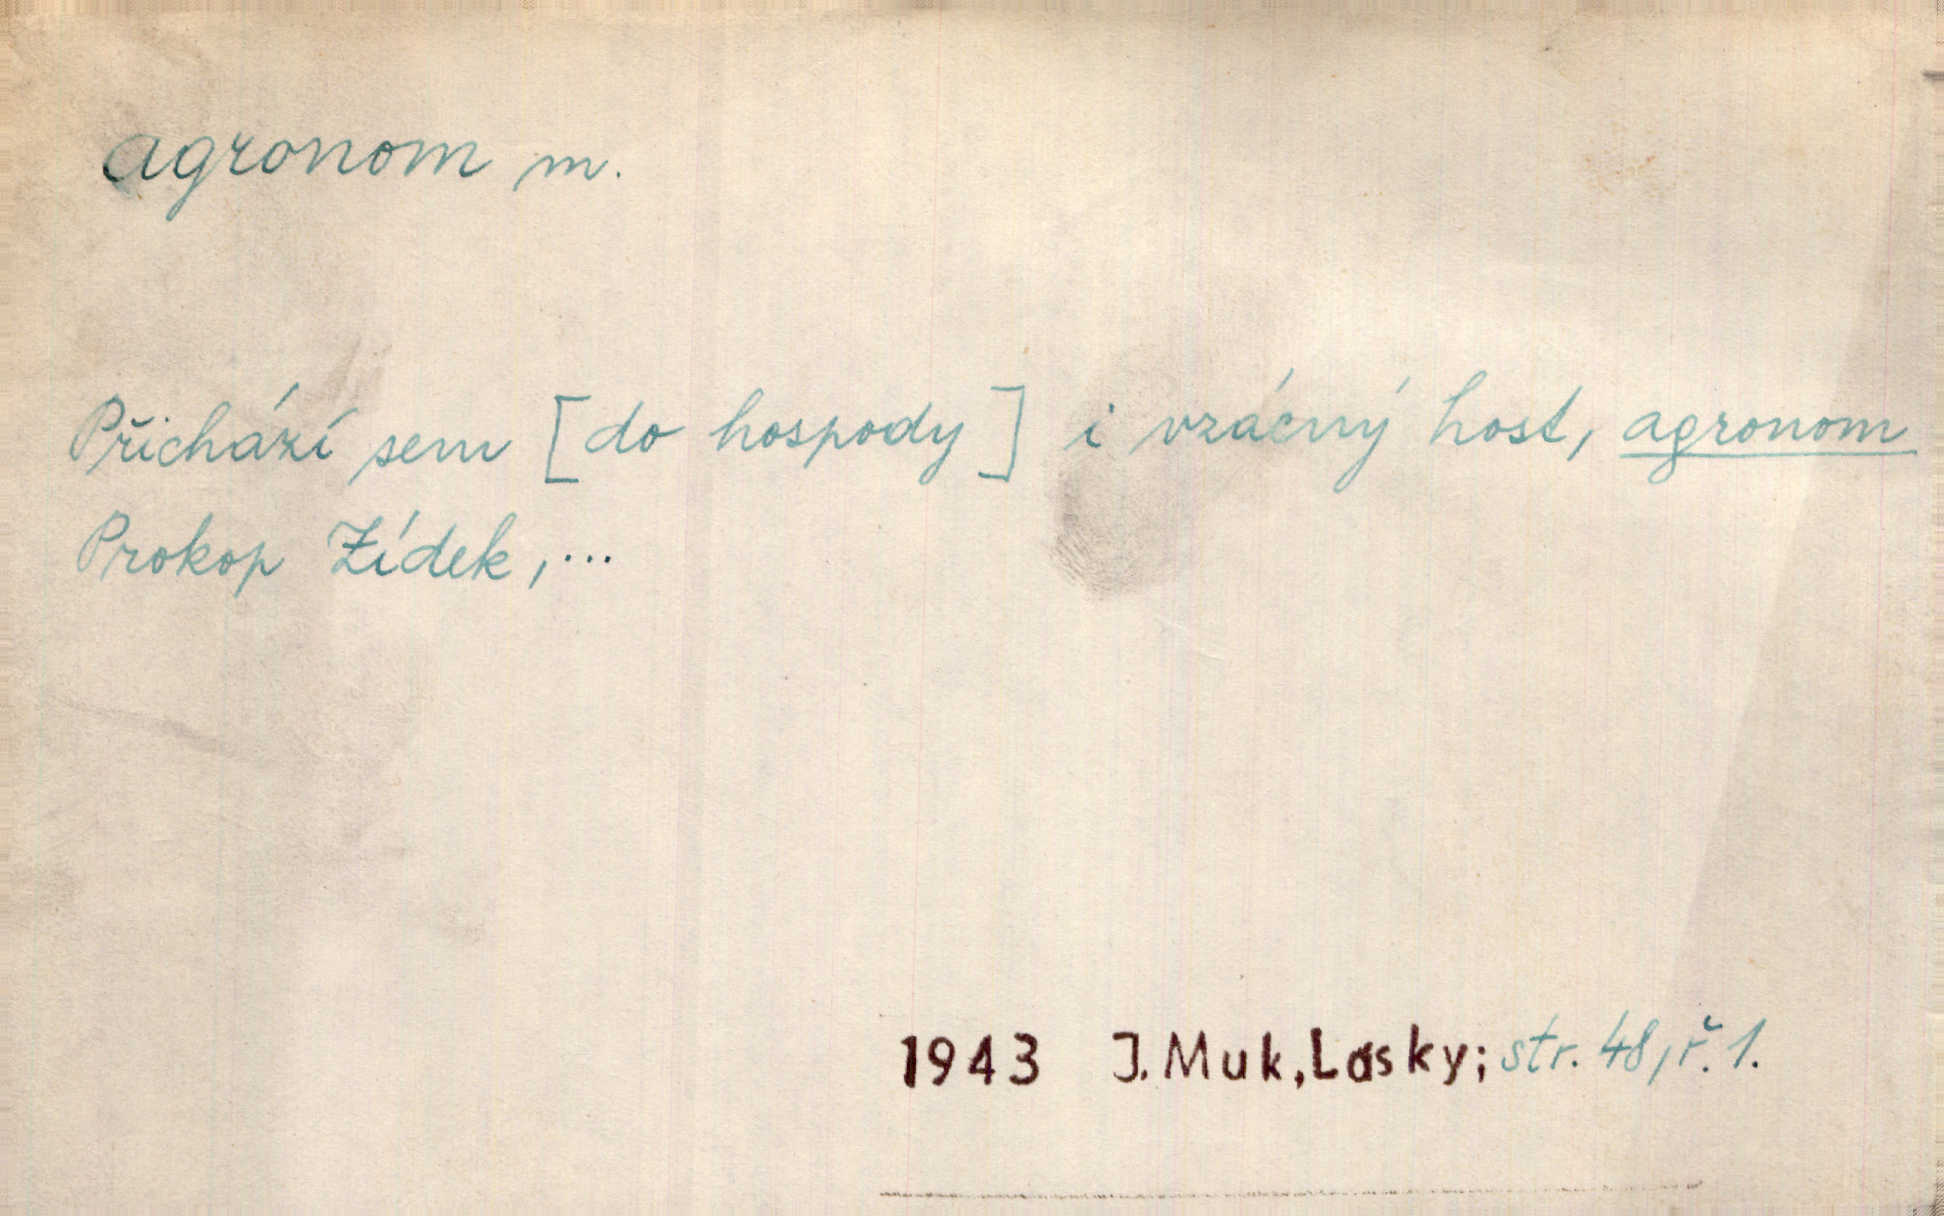 agronom m.
Přichází sem [do hospody] i vzácný host, agronom
Prokop Zídek,...
1943 J. Muk, Lásky; str. 48, ř. 1.